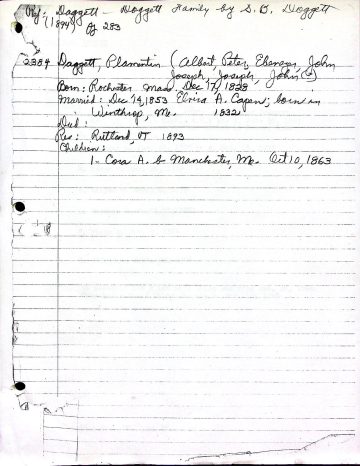 Ref: Daggett - Doggett Family by S. B. Doggett
(1894) Pg 283
2384 Daggett, Plamentin (Albert, Peter, Ebenezer, John
Joseph, Joseph, John (2)
Born: Rochester Mass. Dec 17, 1828
Married: Dec 14, 1853 Elvira A. Capen, born in
Winthrop, Me. 1832
Died:
Res: Rutland, VT 1893
Children:
1- Cora A. b Manchester, Me. Oct 10, 1863